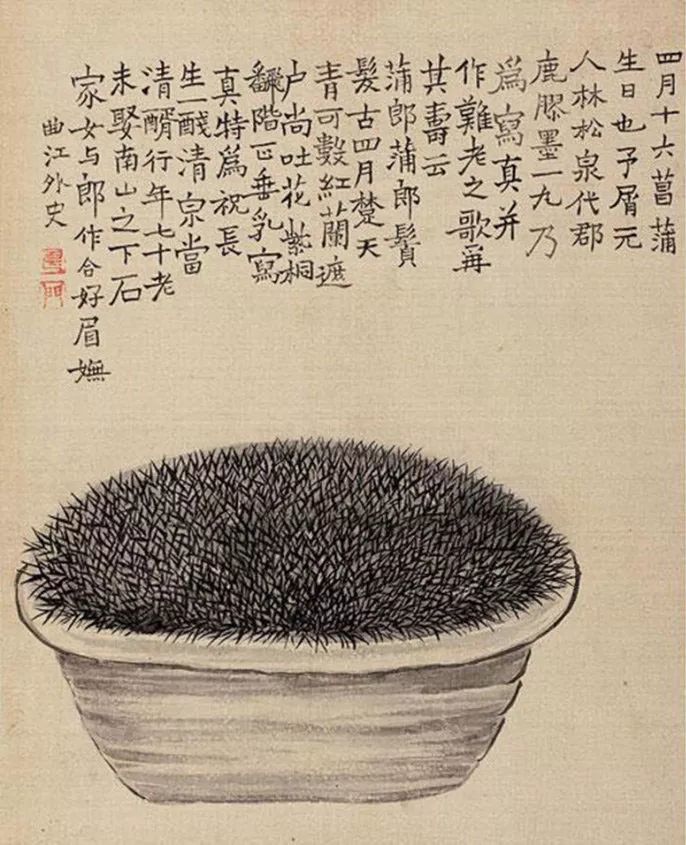 四月十六菖蒲
生日也予屑元
人林松泉代郡
鹿膠墨一丸乃
爲寫真并
作難老之歌再
其壽云
蒲郎蒲郎鬚
髮古四月楚天
青可數紅蘭遮
户尚吐花紫桐
翻階正垂乳寫
真特爲祝長
生一醆清泉當
清醑行年七十老
未娶南山之下石
家女与郎作合好眉嫵
曲江外史
壽門